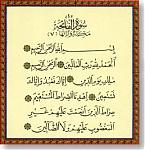 سورة الفاتحة
مكية وآياتها (٧)
بسم الله الرحمن الرحيم
الحمد لله رب العالمين الرحمن الرحيم
ملك يوم الدين إياك نعبد وإياك
نستعين اهدنا الصراط المستقيم
صراط الذين أنعمت عليهم غير
المغضوب عليهم ولا الضالين